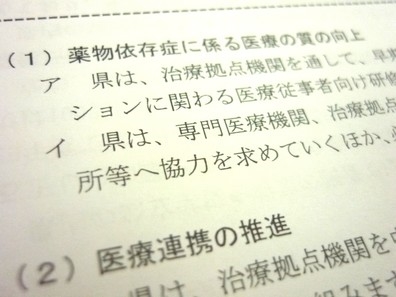 (1) 薬物依存症に係る医療の質の向上
ア 県は、治療拠点機関を通して、早期
ションに関わる医療従事者向け研修
イ 県は、専門医療機関、治療拠点
所等へ協力を求めていくほか、
(2) 医療連携の推進
県は、治療拠点機関を